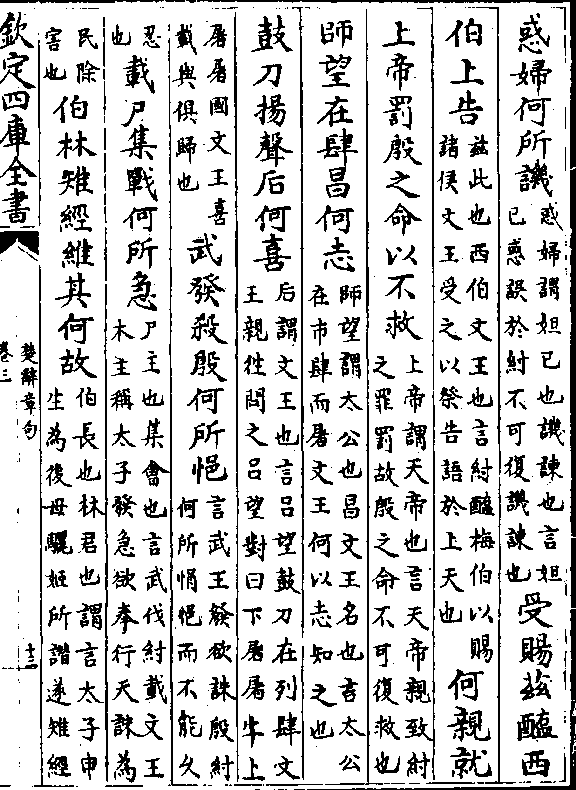 惑婦何所譏惑婦謂妲己也譏諫也言妲已惑誤於紂不可復譏諫也受賜茲醢西
伯上告茲此也西伯文王也言紂醢梅伯以賜諸侯文王受之以祭告語於上天也何親就
上帝罰殷之命以不救上帝謂天帝也言天帝親致紂之罪罰故殷之命不可復救也
師望在肆昌何志師望謂太公也昌文王名也言太公在市肆而屠文王何以志知之也
鼓刀揚聲后何喜后謂文王也言呂望鼓刀在列肆文王親往問之呂望對曰下屠屠牛上
屠屠國文王喜載與俱歸也武發殺殷何所悒言武王發欲誅殷紂何所悁悒而不能久
忍也載尸集戰何所急尸主也集會也言武伐紂載文王木主稱太子發急欲奉行天誅為
民除害也伯林雉經維其何故伯長也林君也謂言太子申生為後母驪姬所譖遂雉經
欽定四庫全書
楚辭章句
卷三
十三